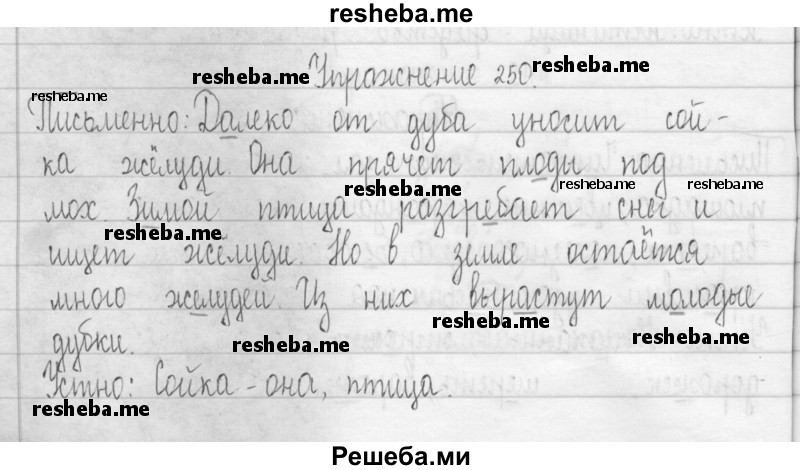 resheba.me
Упражнение 250.
resheba.me
resheba.me
resheba.me
Письменно: Далеко от дуба уносит сой-
ка жёлуди. Она прячет плоды под
resheba.me
resheba.me
resheba.me
мох. Зимой птица разгребает снег и
resheba.me
ищет желуди. Но в земле остаётся
много желудей. Из них вырастут молодые
resheba.me
resheba.me
resheba.me
дубки.
Устно: Сойка - она, птица.
resheba.me
Решеба.ми